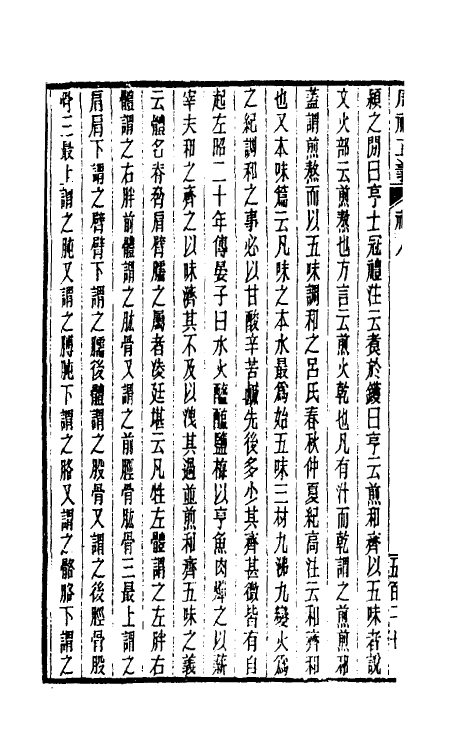 潁之閒曰亨士冠禮注云煑於鑊曰亨云煎和齊以五味者說
文火部云煎熬也方言云煎火乾也凡有汁而乾謂之煎煎邪
蓋謂煎熬而以五味調和之呂氏春秋仲夏紀高注云和齊和
也又本味篇云凡味之本水最爲始五味三材九沸九變火爲
之紀調和之事必以甘酸辛苦鹹先後多少其齊甚微皆有自
起左昭二十年傳晏子曰水火醯醢鹽梅以亨魚肉燀之以薪
宰夫和之齊之以味濟其不及以洩其過並煎和齊五味之義
云體名脊脅肩臂臑之屬者凌廷堪云凡牲左體謂之左胖右
體謂之右胖前體謂之肱骨又謂之前脛骨肱骨三最上謂之
肩肩下謂之臂臂下謂之臑後體謂之股骨又謂之後脛骨股
骨三最上謂之肫又謂之膊肫下謂之胳又謂之骼胳下謂之